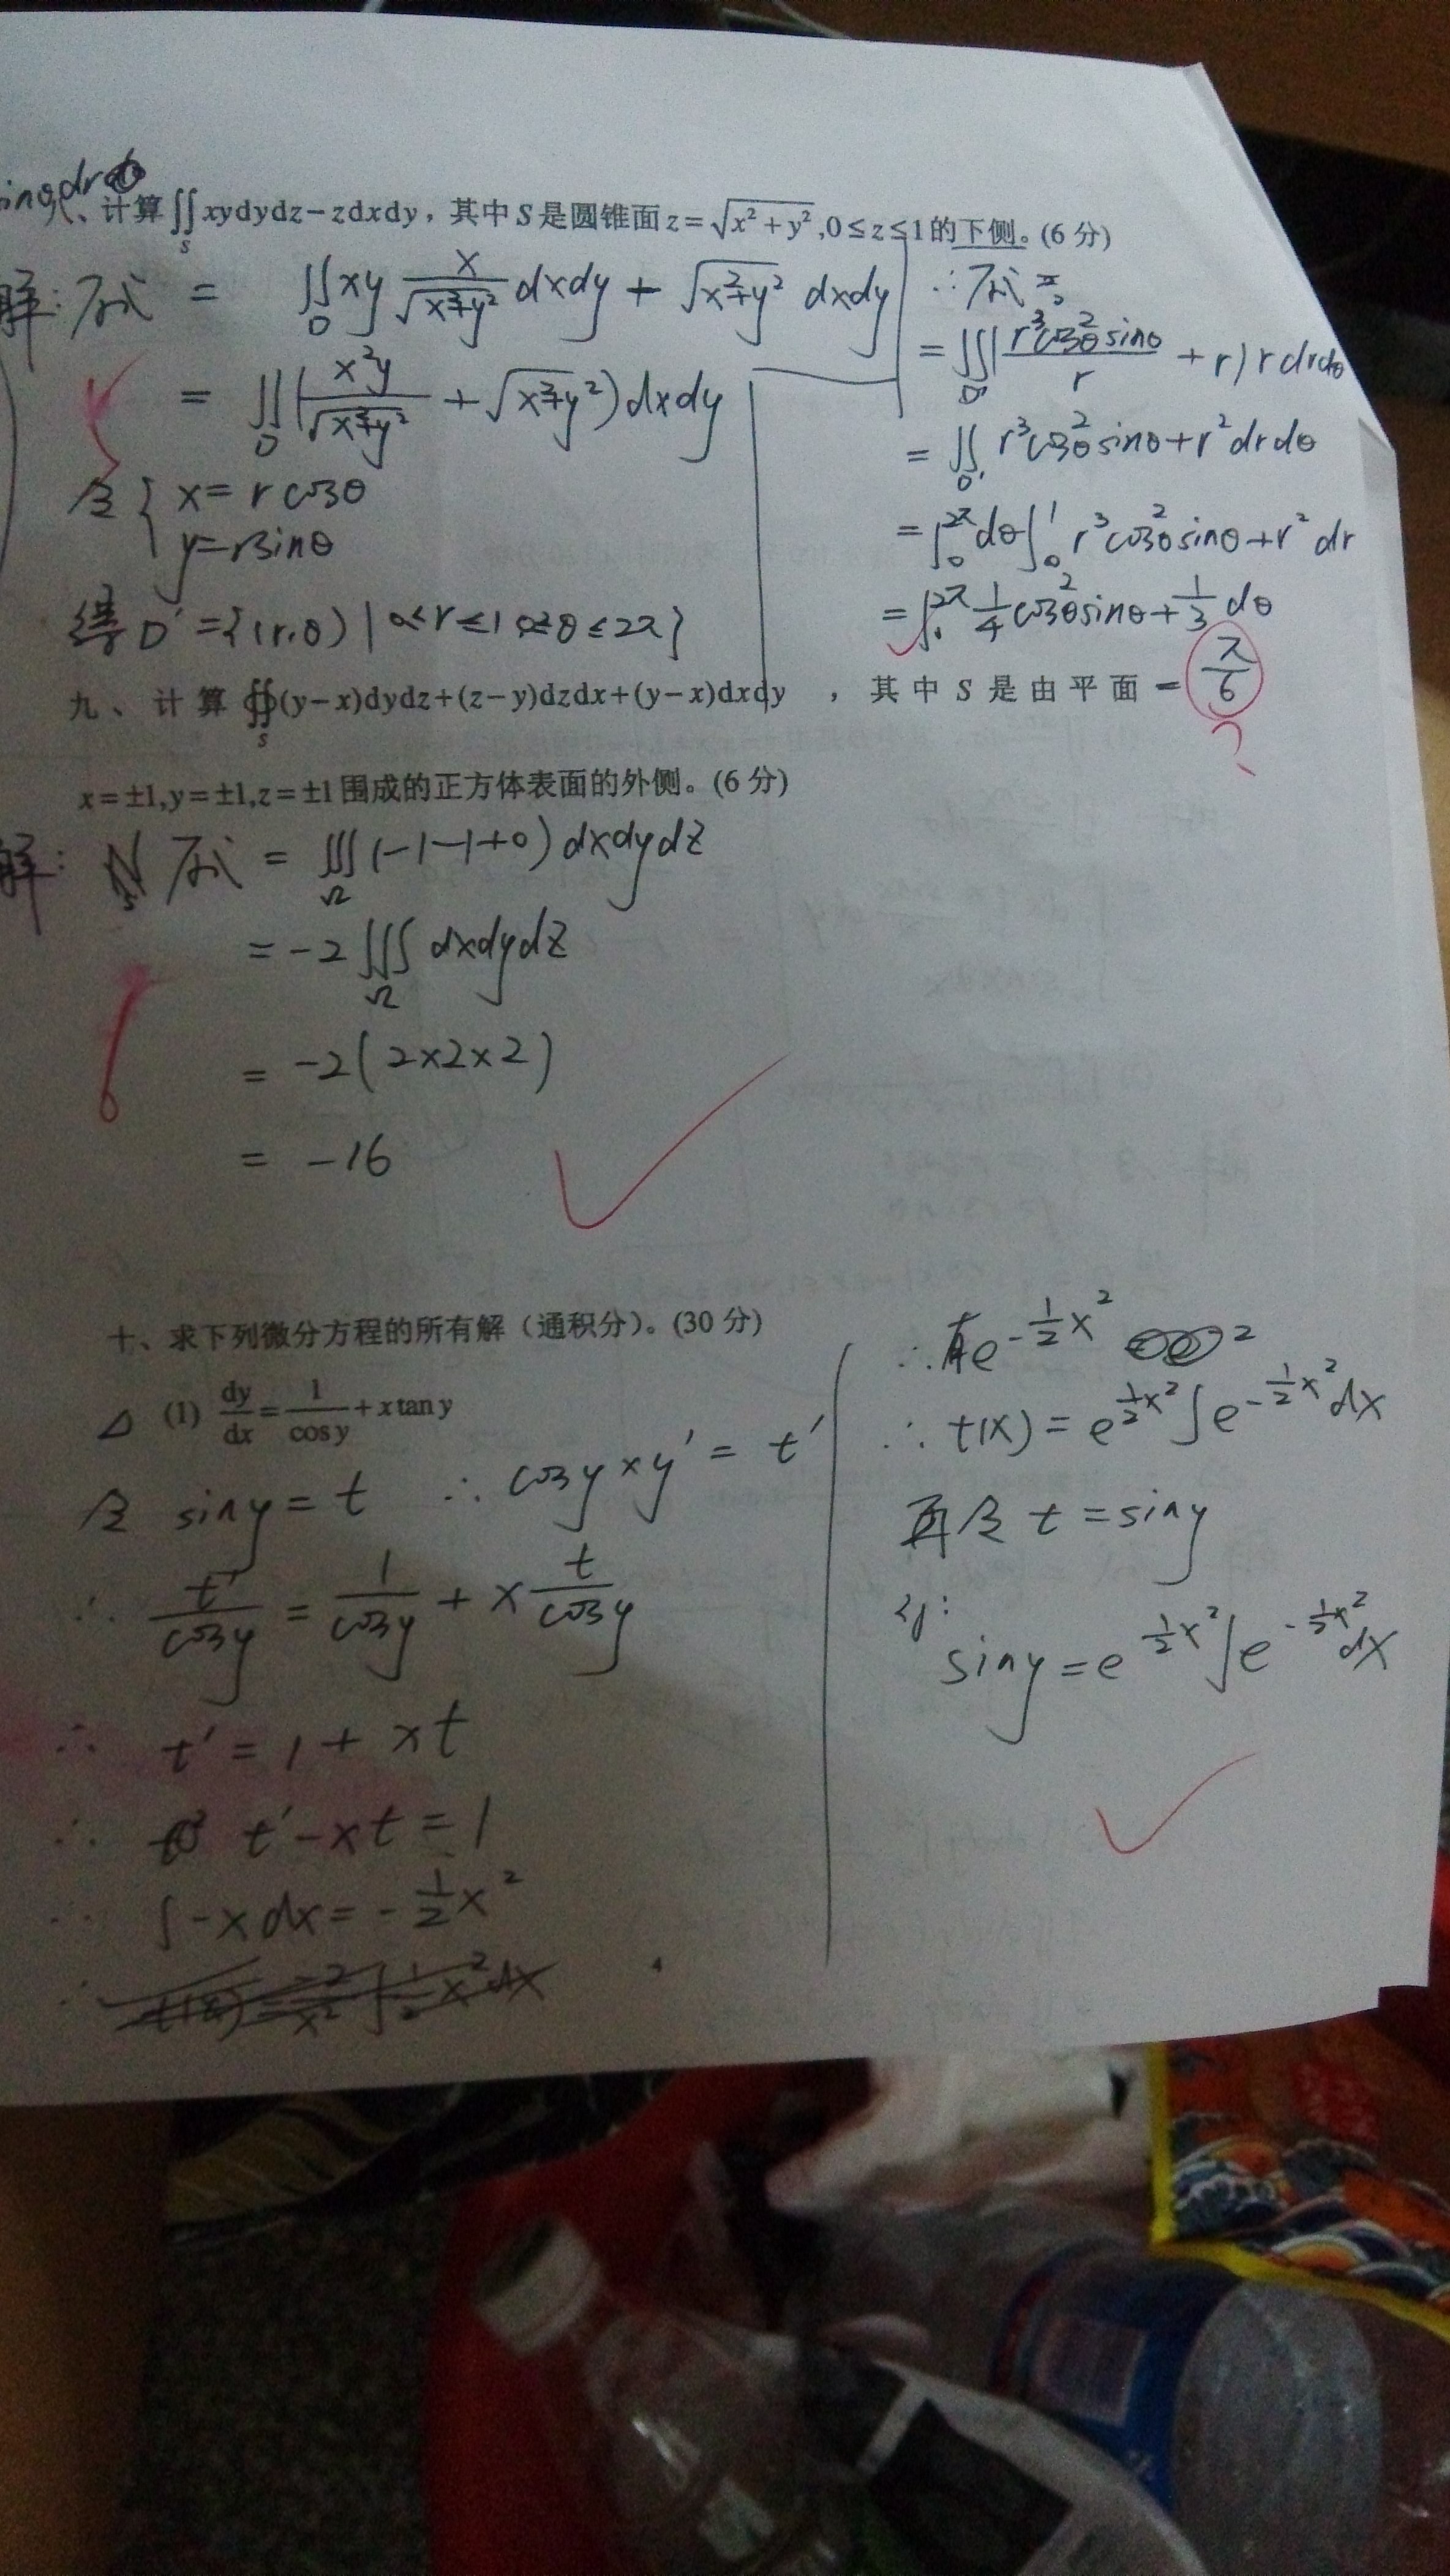 八、计算∬xydydz−zdxdy，其中S是圆锥面z=√(x²+y²),0≤z≤1的下侧。(6分)
S
解: 原式 = ∬_D xy x/√(x²+y²) dxdy + √(x²+y²) dxdy
= ∬_D (x²y/√(x²+y²) + √(x²+y²)) dxdy
令 { x = r cosθ
y = r sinθ
得 D' = {(r,θ) | 0≤r≤1 0≤θ≤2π}
∴ 原式 =
= ∬_D' (r³cos²θ sinθ / r + r) r dr dθ
= ∬_D' r³cos²θ sinθ + r² dr dθ
= ∫₀^2π dθ ∫₀^1 r³cos²θ sinθ + r² dr
= ∫₀^2π 1/4 cos²θ sinθ + 1/3 dθ
= π/6
?
九、计算∯(y−x)dydz+(z−y)dzdx+(y−x)dxdy，其中S是由平面
S
x=±1,y=±1,z=±1围成的正方体表面的外侧。(6分)
解: 原式 = ∭_Ω (−1−1+0) dxdydz
= −2 ∭_Ω dxdydz
= −2(2×2×2)
= −16
6
十、求下列微分方程的所有解（通积分）。(30分)
△ (1) dy/dx = 1/cos y + x tan y
令 siny = t ∴ cosy × y' = t'
∴ t'/cosy = 1/cosy + x t/cosy
∴ t' = 1 + xt
∴ t' − xt = 1
∴ ∫−x dx = −1/2 x²
∴ 有 e^(−1/2 x²)
∴ t(x) = e^(1/2 x²) ∫ e^(−1/2 x²) dx
再令 t = siny
则:
siny = e^(1/2 x²) ∫ e^(−1/2 x²) dx